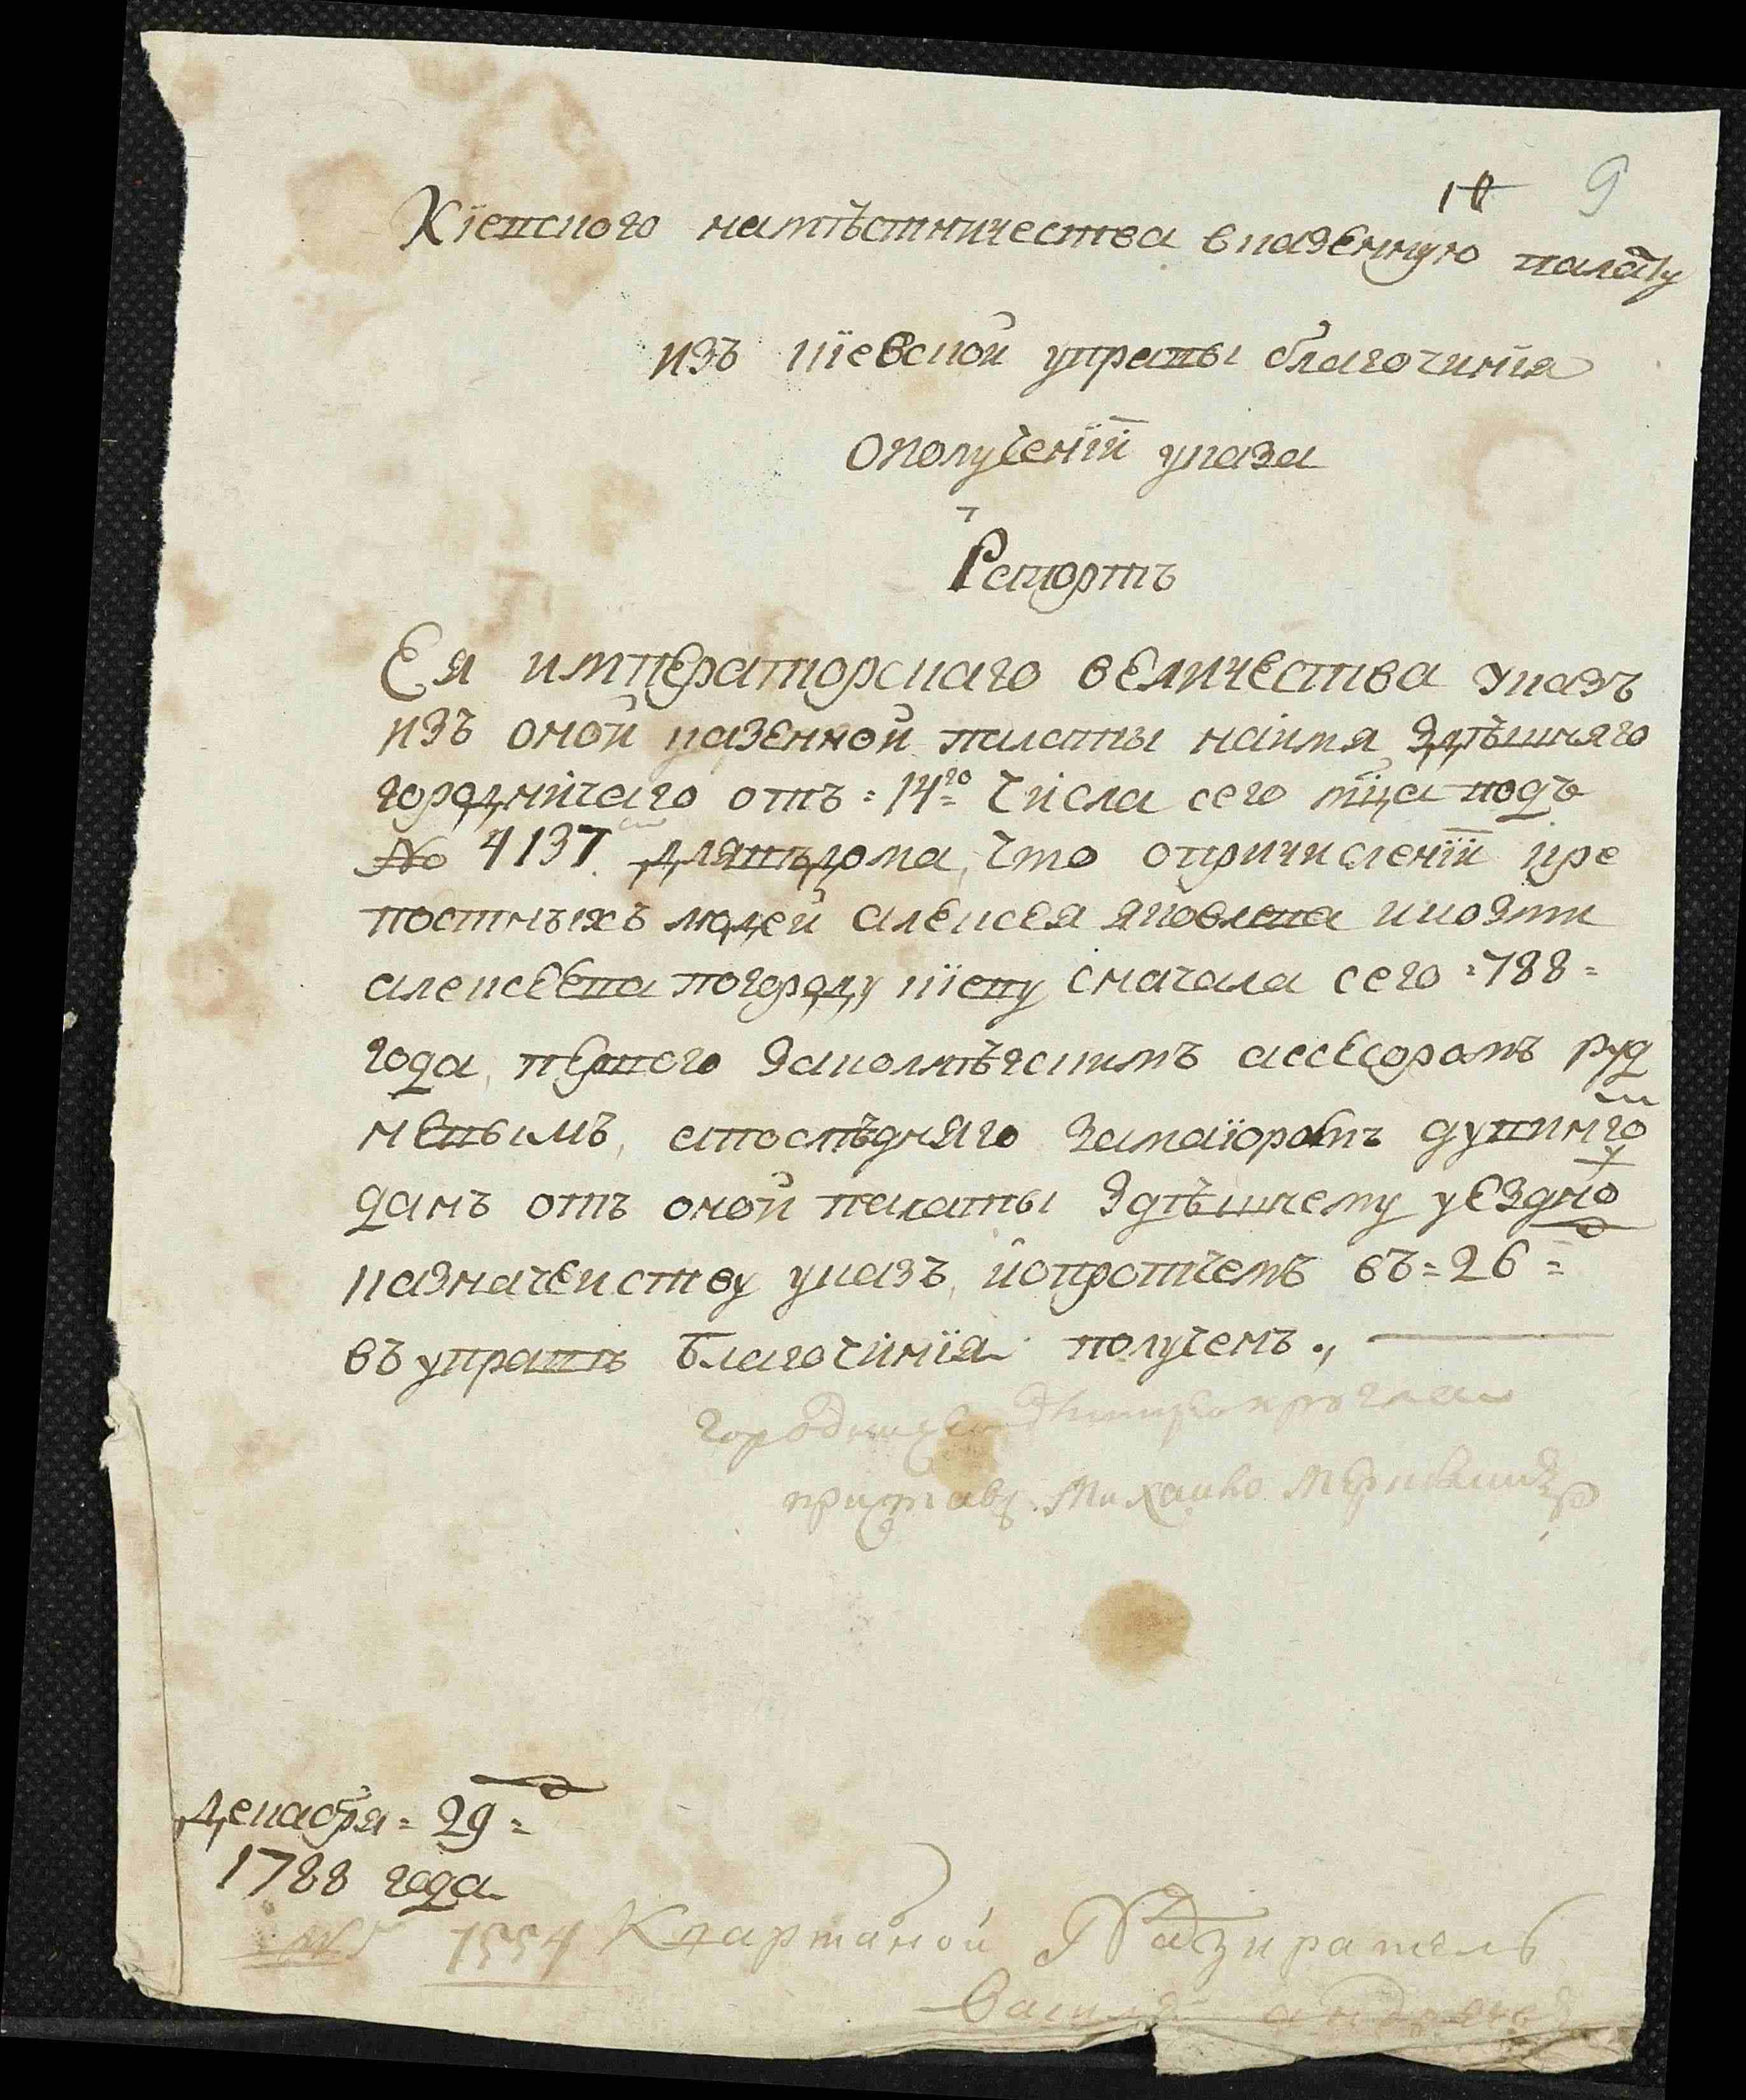 10 9
Кіевского намѣстничества вказенную палату
изъ кіевской управы благочинїя
ополученїи указа
Рапортъ
Ея императорскаго величества указъ
изъ оной казенной палаты наимя здѣшняго
городничаго отъ: 14го числа сего мца подъ
№ 4137. длявѣдома, что опричисленїи кре
постныхъ людей алексея яковлева икозми
алексеева погороду кїеву сначала сего =788=
года, первого заколѣжскимъ асесоромъ руд
невымъ, апослѣдняго замаїоромъ
данъ отъ оной палаты здѣшнему уездно
казначейству указъ, ипротчемъ въ=26=
въ управѣ благочинїя получень.,
приставъ Михайло
декабря = 29 =
1788 года
№ 1554 Квартаной Надзиратель
Василей